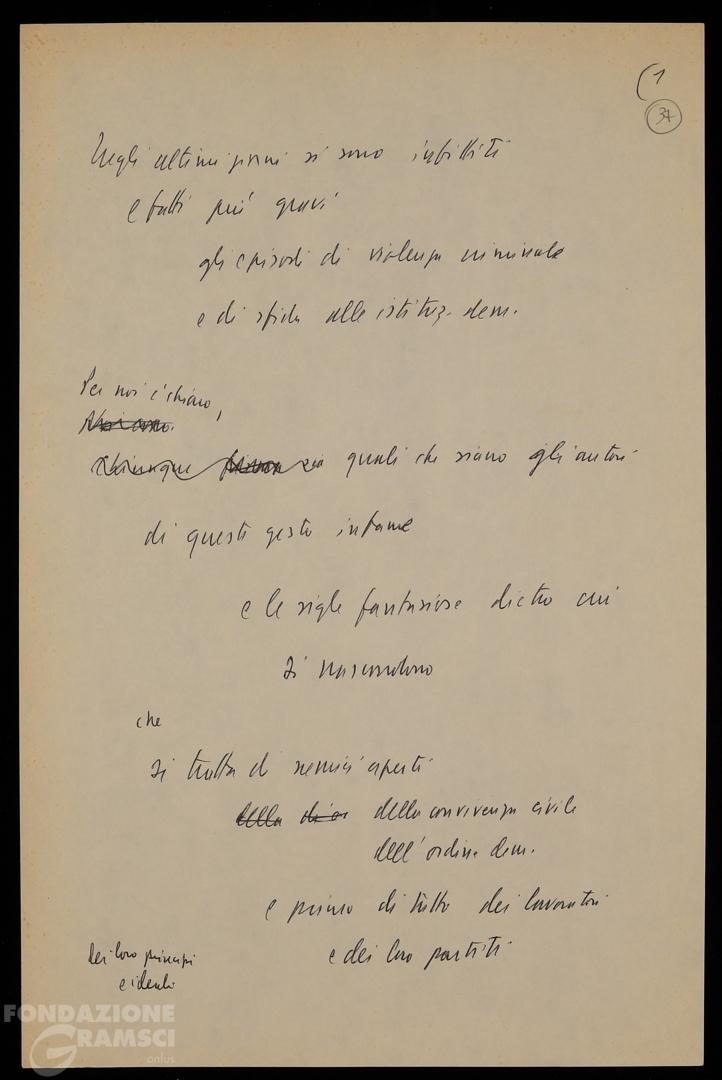 (1
34
Negli ultimi giorni si sono infittiti
e fatti più gravi
gli episodi di violenza criminale
e di sfida alle istituz. dem.
Per noi è chiaro,
Chiunque sia quali che siano gli autori
di questi gesti infame
e le sigle fantasiose dietro cui
si nascondono
che
si tratta di nemici aperti
della della convivenza civile
dell'ordine dem.
e primo di tutto dei lavoratori
e dei loro partiti
dei loro principi
e ideali
FONDAZIONE
GRAMSCI
onlus